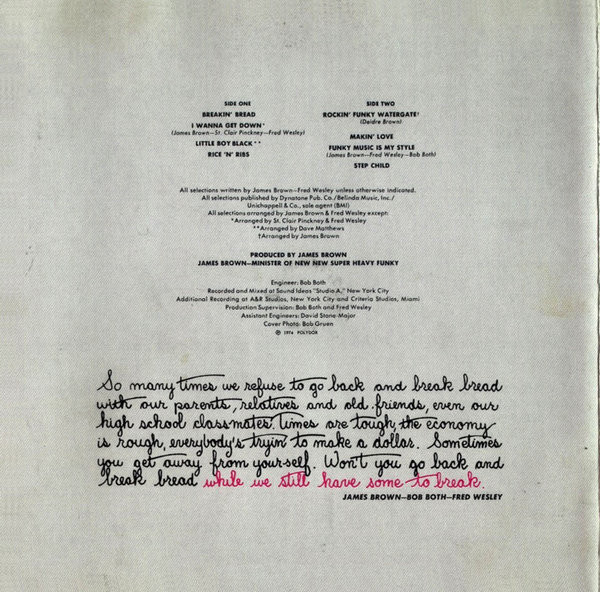 SIDE ONE
BREAKIN' BREAD
I WANNA GET DOWN*
(James Brown—St. Clair Pinckney—Fred Wesley)
LITTLE BOY BLACK**
RICE 'N' RIBS
SIDE TWO
ROCKIN' FUNKY WATERGATE†
(Deidre Brown)
MAKIN' LOVE
FUNKY MUSIC IS MY STYLE
(James Brown—Fred Wesley—Bob Both)
STEP CHILD
All selections written by James Brown—Fred Wesley unless otherwise indicated.
All selections published by Dynatone Pub. Co./Belinda Music, Inc./
Unichappell & Co., sole agent (BMI)
All selections arranged by James Brown & Fred Wesley except:
*Arranged by St. Clair Pinckney & Fred Wesley
**Arranged by Dave Matthews
†Arranged by James Brown
PRODUCED BY JAMES BROWN
JAMES BROWN—MINISTER OF NEW NEW SUPER HEAVY FUNKY
Engineer: Bob Both
Recorded and Mixed at Sound Ideas "Studio A," New York City
Additional Recording at A&R Studios, New York City and Criteria Studios, Miami
Production Supervision: Bob Both and Fred Wesley
Assistant Engineers: David Stone-Major
Cover Photo: Bob Gruen
℗ 1974 POLYDOR
So many times we refuse to go back and break bread
with our parents, relatives and old friends, even our
high school classmates. Times are tough, the economy
is rough, everybody's tryin' to make a dollar. Sometimes
you get away from yourself. Won't you go back and
break bread while we still have some to break.
JAMES BROWN—BOB BOTH—FRED WESLEY